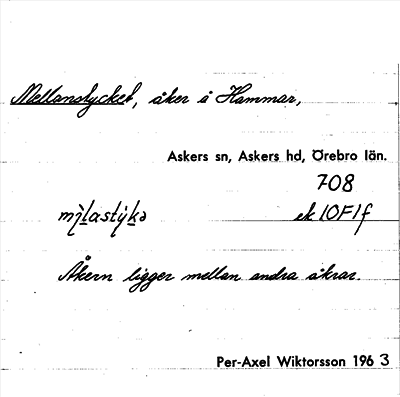 Mellanstycket, åker å Hammar,
Askers sn, Askers hd, Örebro län.
708
ek 10F1f
Åkern ligger mellan andra åkrar.
Per-Axel Wiktorsson 1963